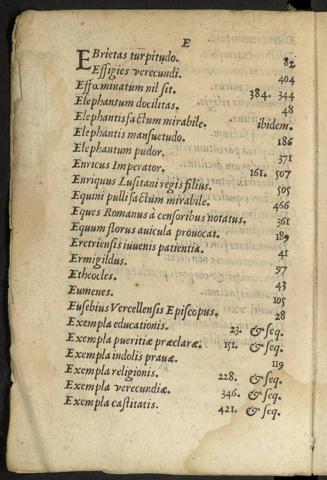 E
EBrietas turpitudo. 82
Effigies verecundi. 404
Effœminatum nil sit. 384. 344
Elephantum docilitas. 48
Elephantis factum mirabile. ibidem.
Elephantis mansuetudo. 186
Elephantum pudor. 371
Enricus Imperator. 161. 507
Enriquus Lusitani regis filius. 505
Equini pulli factum mirabile. 466
Eques Romanus à censoribus notatus. 361
Equum florus auicula prouocat. 189
Eretriensis iuuenis patientia. 41
Ermigildus. 97
Etheocles. 43
Eumenes. 105
Eusebius Vercellensis Episcopus. 28
Exempla educationis. 23. & seq.
Exempla pueritiæ præclaræ. 151. & seq.
Exempla indolis prauæ. 119
Exempla religionis. 228. & seq.
Exempla verecundiæ. 346. & seq.
Exempla castitatis. 421. & seq.